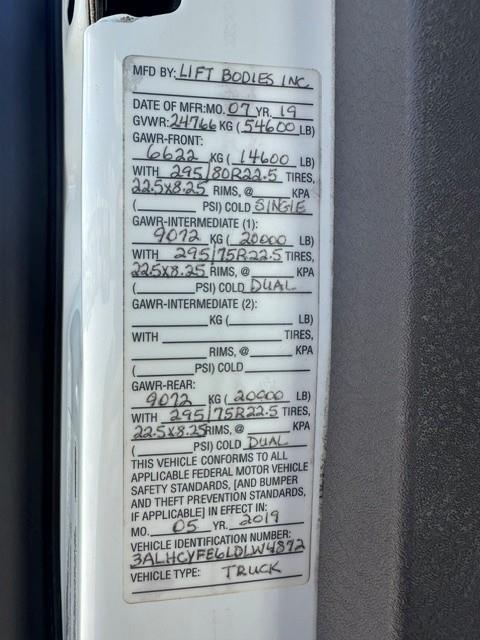 MFD BY: LIFT BODIES INC.
DATE OF MFR: MO. 07 YR. 19
GVWR: 24766 KG (54600 LB)
GAWR-FRONT:
6622 KG (14600 LB)
WITH 295/80R22.5 TIRES,
22.5X8.25 RIMS, @ KPA
( PSI) COLD SINGLE
GAWR-INTERMEDIATE (1):
9072 KG (20000 LB)
WITH 295/75R22.5 TIRES,
22.5X8.25 RIMS, @ KPA
( PSI) COLD DUAL
GAWR-INTERMEDIATE (2):
KG ( LB)
WITH TIRES,
RIMS, @ KPA
( PSI) COLD
GAWR-REAR:
9072 KG (20000 LB)
WITH 295/75R22.5 TIRES,
22.5X8.25 RIMS, @ KPA
( PSI) COLD DUAL
THIS VEHICLE CONFORMS TO ALL
APPLICABLE FEDERAL MOTOR VEHICLE
SAFETY STANDARDS, [AND BUMPER
AND THEFT PREVENTION STANDARDS,
IF APPLICABLE] IN EFFECT IN:
MO. 05 YR. 2019
VEHICLE IDENTIFICATION NUMBER:
3ALHCYFE6LDLW4872
VEHICLE TYPE: TRUCK